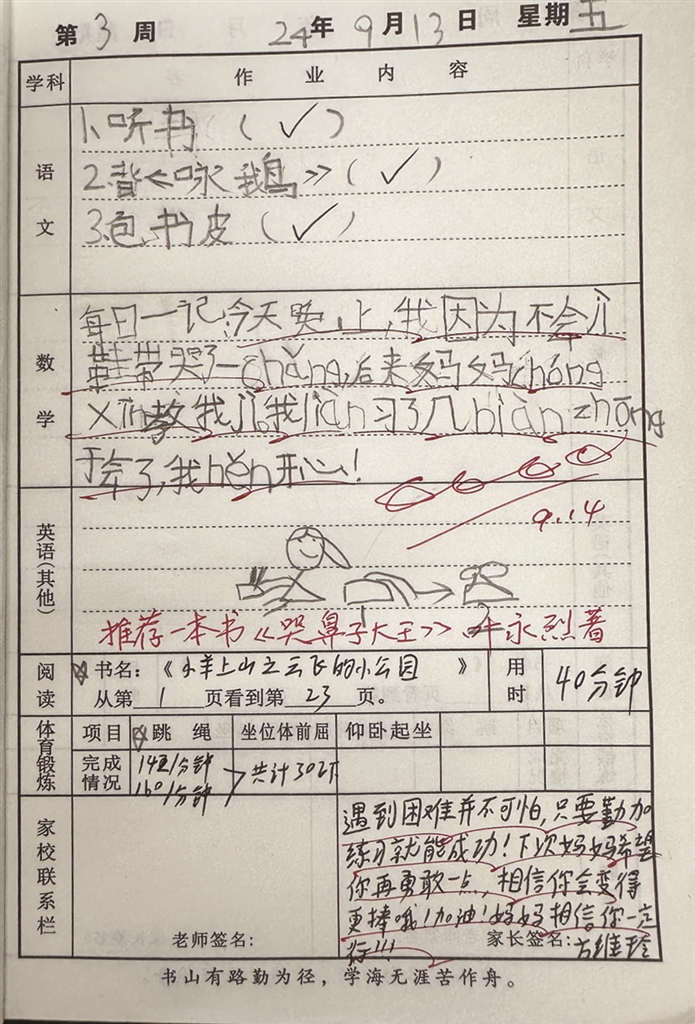 第 3 周 24年 9月13日 星期五
学科 作业内容
语文
1.听书（✓）
2.背《咏鹅》（✓）
3.包书皮（✓）
数学
每日一记:今天晚上,我因为不会儿
鞋带哭了一chǎng,后来妈妈chóng
xīn教我儿。我liàn习了几biàn zhōng
于会了,我hěn开心!
9.14
英语(其他)
推荐一本书《哭鼻子大王》 永烈著
阅读
书名:《小羊上山之云飞的小公园》 用时 40分钟
从第 1 页看到第 23 页。
体育锻炼
项目 跳绳 坐位体前屈 仰卧起坐
完成情况 142/分钟 160/分钟 共计302下
家校联系栏
遇到困难并不可怕,只要勤加
练习就能成功!下次妈妈希望
你再勇敢一点,相信你会变得
更棒哦!加油!妈妈相信你一定
行!!!
老师签名: 家长签名:
书山有路勤为径，学海无涯苦作舟。